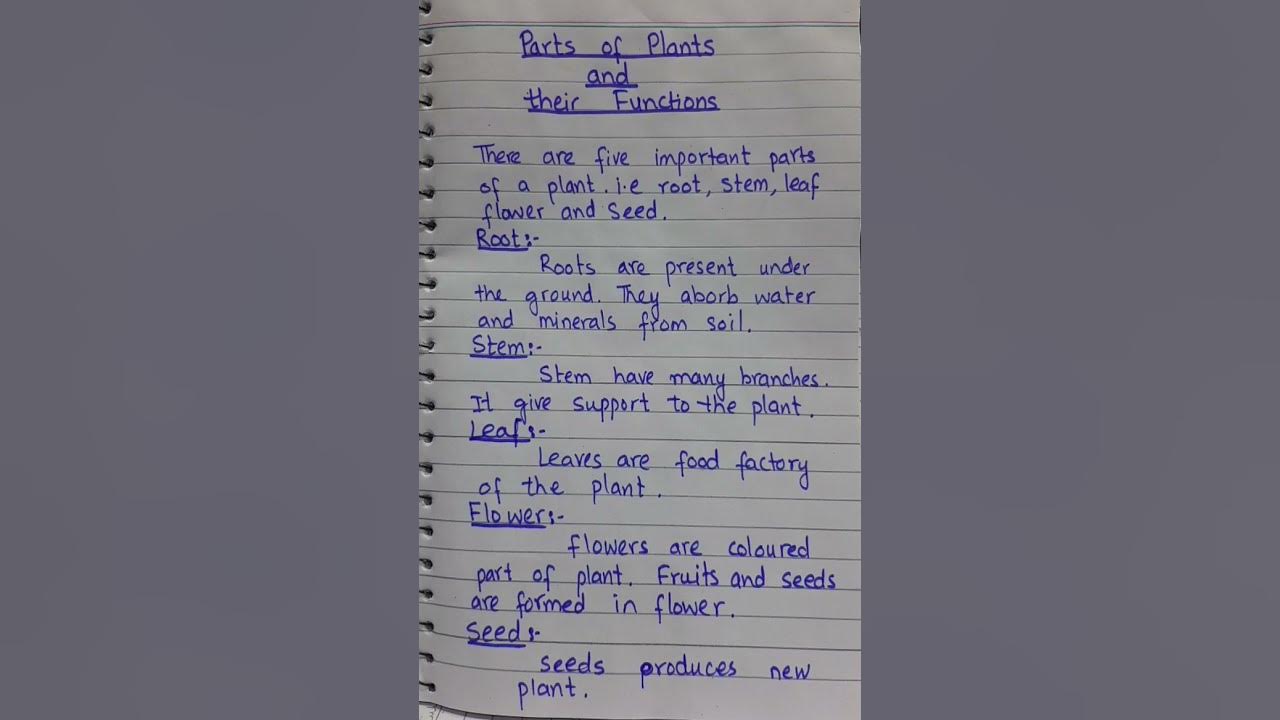 Parts of Plants
and
their Functions
There are five important parts
of a plant. i.e root, stem, leaf
flower and seed.
Root:-
Roots are present under
the ground. They aborb water
and minerals from soil.
Stem:-
Stem have many branches.
It give support to the plant.
Leaf:-
Leaves are food factory
of the plant.
Flower:-
flowers are coloured
part of plant. Fruits and seeds
are formed in flower.
Seed:-
seeds produces new
plant.